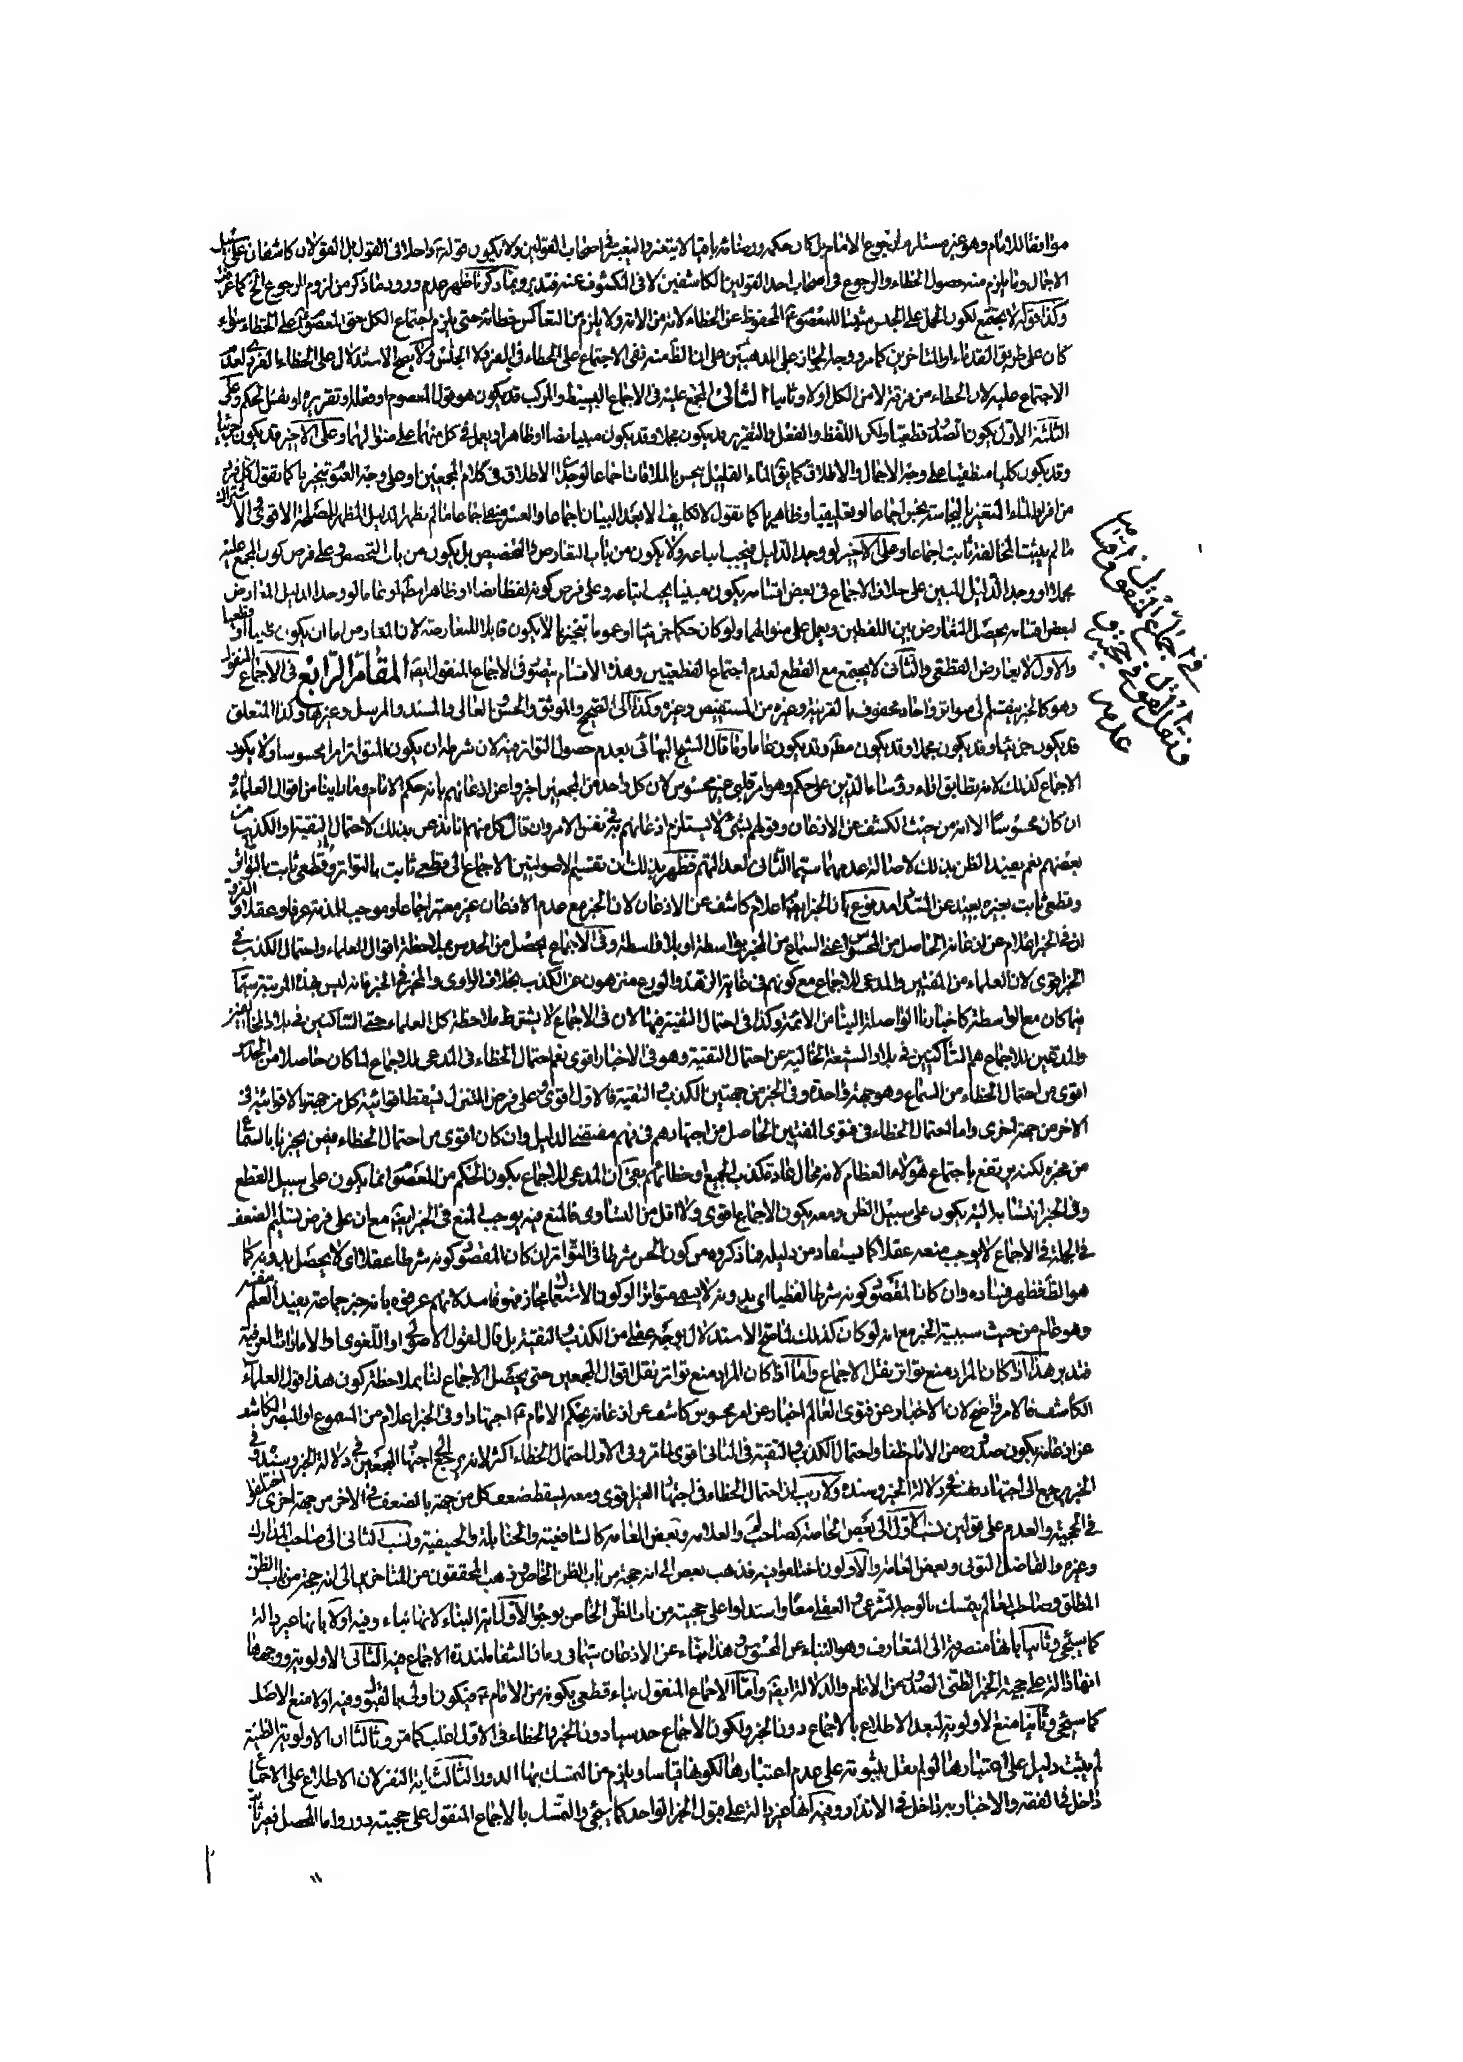 موافقا للامام وهو غير مستلزم لرجوع الامام بل كان حكمه ورضائه باقيا لا يتغير والتغيير في اصحاب القولين ولا يكون قوله واحدا في القول بل القولان كاشفان على سبيل
الاجمال وما يلزم منه حصول الخطاء والرجوع في اصحاب احد القولين الكاشفين لا في المكشوف عنه فتدبر وبما ذكرنا ظهر عدم ورود ما ذكر من لزوم الرجوع الخ كما عرفت
وكذا قوله لا يجتمع لكون الحمل على الجنس مثبتا للمعصوم المحفوظ عن الخطاء لانه من الامة ولا يلزم من التعاكس خطائه حتى يلزم اجتماع الكل حتى المعصوم على الخطاء سواء
كان على طريق القدماء او المتاخرين كما مر ووجه الجواز على المذهبين على ان الظ منه نفي الاجتماع على الخطاء في المفرد لا الجنس ولا يصح الاستدلال على الخطاء الفردي لعدم
الاجتماع عليه لان الخطاء من فرقة لا من الكل اولا وثانيا الثاني المجمع عليه في الاجماع البسيط والمركب قد يكون هو قول المعصوم او فعله او تقريره او نفس الحكم وعلى
الثلثة الاول يكون قطعيا ولكن اللفظ والفعل والتقرير قد يكون مجملا وقد يكون مبينا نصا او ظاهرا ويعمل في كل منهما على منوالهما وعلى الاخير قد يكون جزئيا
وقد يكون كليا منطقيا على وجه الاجمال والاطلاق كما يق الماء القليل ينجس بالملاقات اجماعا لوجود الاطلاق في كلام المجمعين او على وجه العموم تنجيزيا كما نقول كل فرد
من افراد الماء المتغير بالنجاسة ينجس اجماعا او تعليقيا وظاهريا كما نقول لا تكليف الا بعد البيان اجماعا
ما لم يثبت المخالفة ثابت اجماعا وعلى الاخير لو وجد الدليل فيجب اتباعه ولا يكون من باب التعارض والتخصيص بل يكون من باب التخصص وعلى فرض كون المجمع عليه
مجملا او وجد الدليل المبين على خلاف الاجماع في بعض اقسامه يكون مبينا يجب اتباعه وعلى فرض كونه لفظا نصا او ظاهرا مط او عاما لو وجد الدليل المعارض
لبعض اقسامه يحصل التعارض بين اللفظين ويعمل على منوالهما ولو كان حكما جزئيا او عموما تنجيزيا لا يكون قابلا للمعارضة لان المعارض اما ان يكون ظنيا او قطعيا
والاول لا يعارض القطعي والثاني لا يجتمع مع القطع لعدم اجتماع القطعيين وهذه الاقسام يتصور في الاجماع المنقول ايضا المقام الرابع في الاجماع المنقول
وهو كالخبر ينقسم الى متواتر واحاد محفوف بالقرينة وغيره من المستفيض وغيره وكذا الى الصحيح والموثق والحسن والعالي والمسند والمرسل وغيرها وكذا المتعلق
قد يكون جزئيا وقد يكون مجملا وقد يكون مط وقد يكون عاما وما قال الشيخ البهائي بعدم حصول التواتر فيه لان شرطه ان يكون المتواتر امرا محسوسا ولا يكون
الاجماع كذلك لانه تطابق اراء رؤساء الدين على حكم وهو امر قلبي غير محسوس لان كل واحد من المجمعين اخبروا عن اذعانهم بانه حكم الامام وما راينا من اقوال العلماء و
ان كان محسوسا الا انه من حيث الكشف عن الاذعان وقولهم بشيء لا يستلزم اذعانهم به في نفس الامر وان قال كل منهم انا نذعن بذلك لاحتمال التقية او الكذب من
بعضهم نعم يفيد الظن بذلك لاصالة عدمهما سيما الثاني لعدالتهم فظهر بذلك ان تقسيم الاصوليين الاجماع الى قطعي ثابت بالتواتر وقطعي ثابت بالتواتر
وقطعي ثابت بغيره بعيد عن السداد مدفوع بان الخبر ايضا اعلام كاشف عن الاذعان لان الخبر مع عدم الاذعان غير معتبر اجماعا وموجب للذم عرفا وعقلا والفرق
ان في الخبر اعلام عن اذعانه الحاصل من الحس اعني السماع من المخبر بواسطة او بلا واسطة وفي الاجماع يحصل من الحدس بملاحظة اقوال العلماء واحتمال الكذب في
الخبر اقوى لان العلماء من المفتيين والمدعي للاجماع مع كونهم في غاية الزهد والورع منزهون عن الكذب بخلاف الراوي والمخبر في الخبر فانه ليس بهذه المرتبة سيما
فيما كان مع الواسطة كاخبارنا الواصلة الينا من الائمة وكذا في احتمال التقية فيها لان في الاجماع لا يشترط ملاحظة كل العلماء حتى الساكنين في بلاد المخالفين
والمدعين للاجماع هم الساكنين في بلاد الشيعة الخالية عن احتمال التقية وهو في الاخبار اقوى نعم احتمال الخطاء في المدعي للاجماع لما كان حاصلا من الحدس
اقوى من احتمال الخطاء من السماع وهو جهة واحدة وفي الخبر من جهتين الكذب والتقية فالاول اقوى وعلى فرض التنزل يسقط اقوائية كل من جهة بالاقوائية في
الاخر من جهة اخرى واما احتمال الخطاء في فتوى المفتيين الحاصل من اجتهادهم في فهم مقتضى الدليل وان كان اقوى من احتمال الخطاء فيمن يخبر بالسماع
من غيره لكنه يرتفع باجتماع هؤلاء العظام لانه محال عادة كذب الجميع وخطائهم بقي ان المدعي للاجماع يكون الحكم من المعصوم انما يكون على سبيل القطع
وفي الخبر انتسابه اليه يكون على سبيل الظن ومعه يكون الاجماع اقوى ولا اقل من التساوي فالمنع فيه يوجب المنع في الخبر ايضا مع ان على فرض تسليم الضعف
في الجملة في الاجماع لا يوجب منعه عقلا كما يستفاد من دليله وما ذكروه من كون الحس شرطا في التواتر ان كان المقصود كونه شرطا عقلا اي لا يحصل بدونه كما
هو الظ فظهر فساده وان كان المقصود كونه شرطا لفظيا اي بدونه لا يسمى متواترا لو كون الاستعمال مجازا فهو فاسد لانهم عرفوه بانه خبر جماعة يفيد العلم بنفسه
وهو عام من حيث سببية الخبر مع انه لو كان كذلك لما صح الاستدلال بوجه عقلي من الكذب والتقية بل قال لقول الاصولي او اللغوي او الامارات العرفية
فتدبر هذا اذا كان المراد منع تواتر نقل الاجماع واما اذا كان المراد منع تواتر نقل اقوال المجمعين حتى يحصل الاجماع لنا بملاحظة كون هذا قول العلماء
الكاشف فالامر واضح لان الاخبار عن فتوى العالم اخبار عن امر محسوس كاشف عن اذعانه بحكم الامام اجتهادا وفي الخبر اعلام من المسموع او المبصر الكاشف
عن اذعانه بكون صدوره من الامام ظنا واحتمال الكذب والتقية في الثاني اقوى لما مر وفي الاول احتمال الخطاء اكثر لانه يرجع الى اجتهاد المجمعين في دلالة الخبر وسنده وفي
الخبر يرجع الى اجتهاد دلالة الخبر وسنده ولا ريب ان احتمال الخطاء في اجتهاد الغير اقوى ومعه يسقط ضعف كل من جهة بالضعف في الاخر من جهة اخرى اختلفوا
في الحجية والعدم على قولين نسب الاول الى بعض الخاصة كصاحب لم والعلامة وبعض العامة كالشافعية والحنابلة والحنيفية ونسب الثاني الى صاحب المدارك
وغيره والفاضل التوني وبعض العامة والاولون اختلفوا فيه فذهب بعض الى انه حجة من باب الظن الخاص وذهب المحققون من المتاخرين الى انه حجة من باب الظن
المطلق وصاحب لم تمسك بالوجه الشرعي والعقلي معا واستدلوا على حجيته من باب الظن الخاص بوجوه الاول اية النباء لانها نباء وفيه اولا بانها غير دالة
كما سيجئ وثانيا بانها منصرفة الى المتعارف وهو النباء عن المحسوس وهذا نباء عن الاذعان سيما في زماننا هذا لندرة الاجماع فيه الثاني الاولوية ووجهها
انها دالة على حجية الخبر الظني الصدور من الامام والدلالة ايضا واما الاجماع المنقول نباء قطعي بكونه من الامام فيكون اولى بالقبول وفيه اولا منع الاصل
كما سيجئ وثانيا منع الاولوية لبعد الاطلاع بالاجماع دون الخبر ولكون الاجماع حدسيا دون الخبر والخطاء في الاول اغلب كما مر وثالثا ان الاولوية الظنية
لم يثبت دليل على اعتبارها لو لم نقل بثبوته على عدم اعتبارها لكونها قياسا ويلزم من التمسك بها الدور الثالث اية النفر لان الاطلاع على الاجماع
داخل في الفقه والاخبار به داخل في الانذار وفيه انها غير دالة على قبول الخبر الواحد كما سيجئ والتمسك بالاجماع المنقول على حجيته دور واما المحصل فغير ثابت